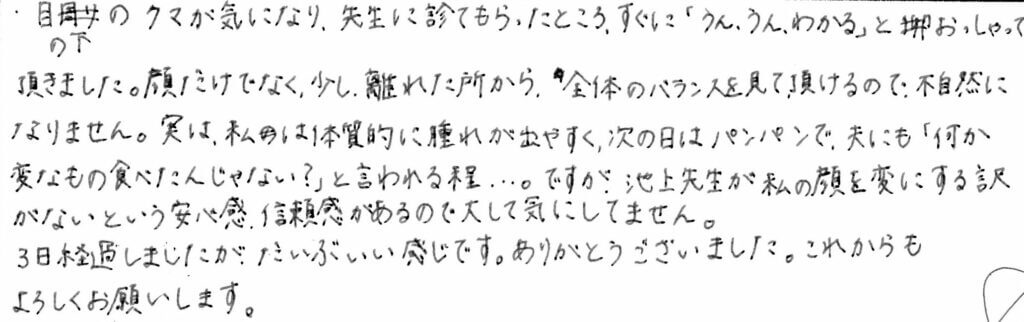 ・目の下のクマが気になり、先生に診てもらったところ、すぐに「うん、うん、わかる」とおっしゃって
頂きました。顔だけでなく、少し、離れた所から、全体のバランスを見て頂けるので、不自然に
なりません。実は、私は体質的に腫れが出やすく、次の日はパンパンで、夫にも「何か
変なもの食べたんじゃない?」と言われる程…。ですが、池上先生が私の顔を変にする訳
がないという安心感、信頼感があるので大して気にしてません。
3日経過しましたが、だいぶいい感じです。ありがとうございました。これからも
よろしくお願いします。